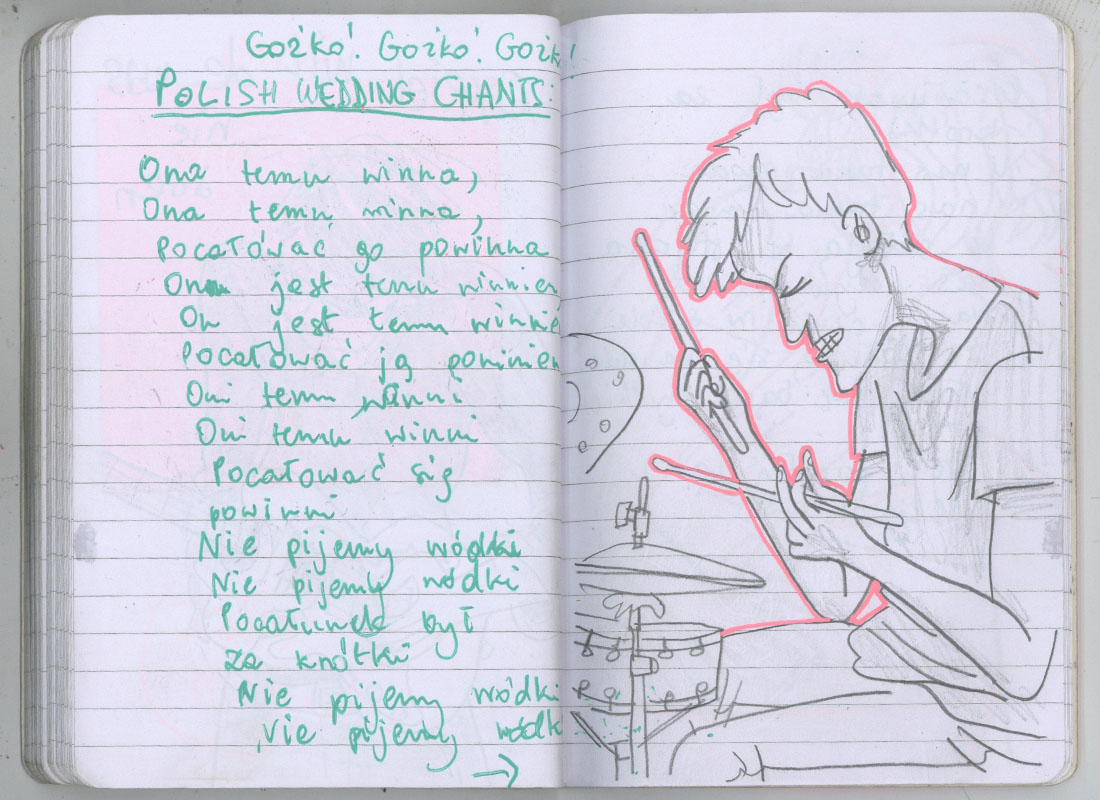 Gożko! Gożko! Gożk!
POLISH WEDDING CHANTS:
Ona temu winna,
Ona temu winna,
Pocałować go powinna
On jest temu winnien
On jest temu winnie
Pocałować ją powinien
Oni temu winni
Oni temu winni
Pocałować się
powinni
Nie pijemy wódki
Nie pijemy wódki
Pocałunek był
za krótki
Nie pijemy wódki
Nie pijemy wódk